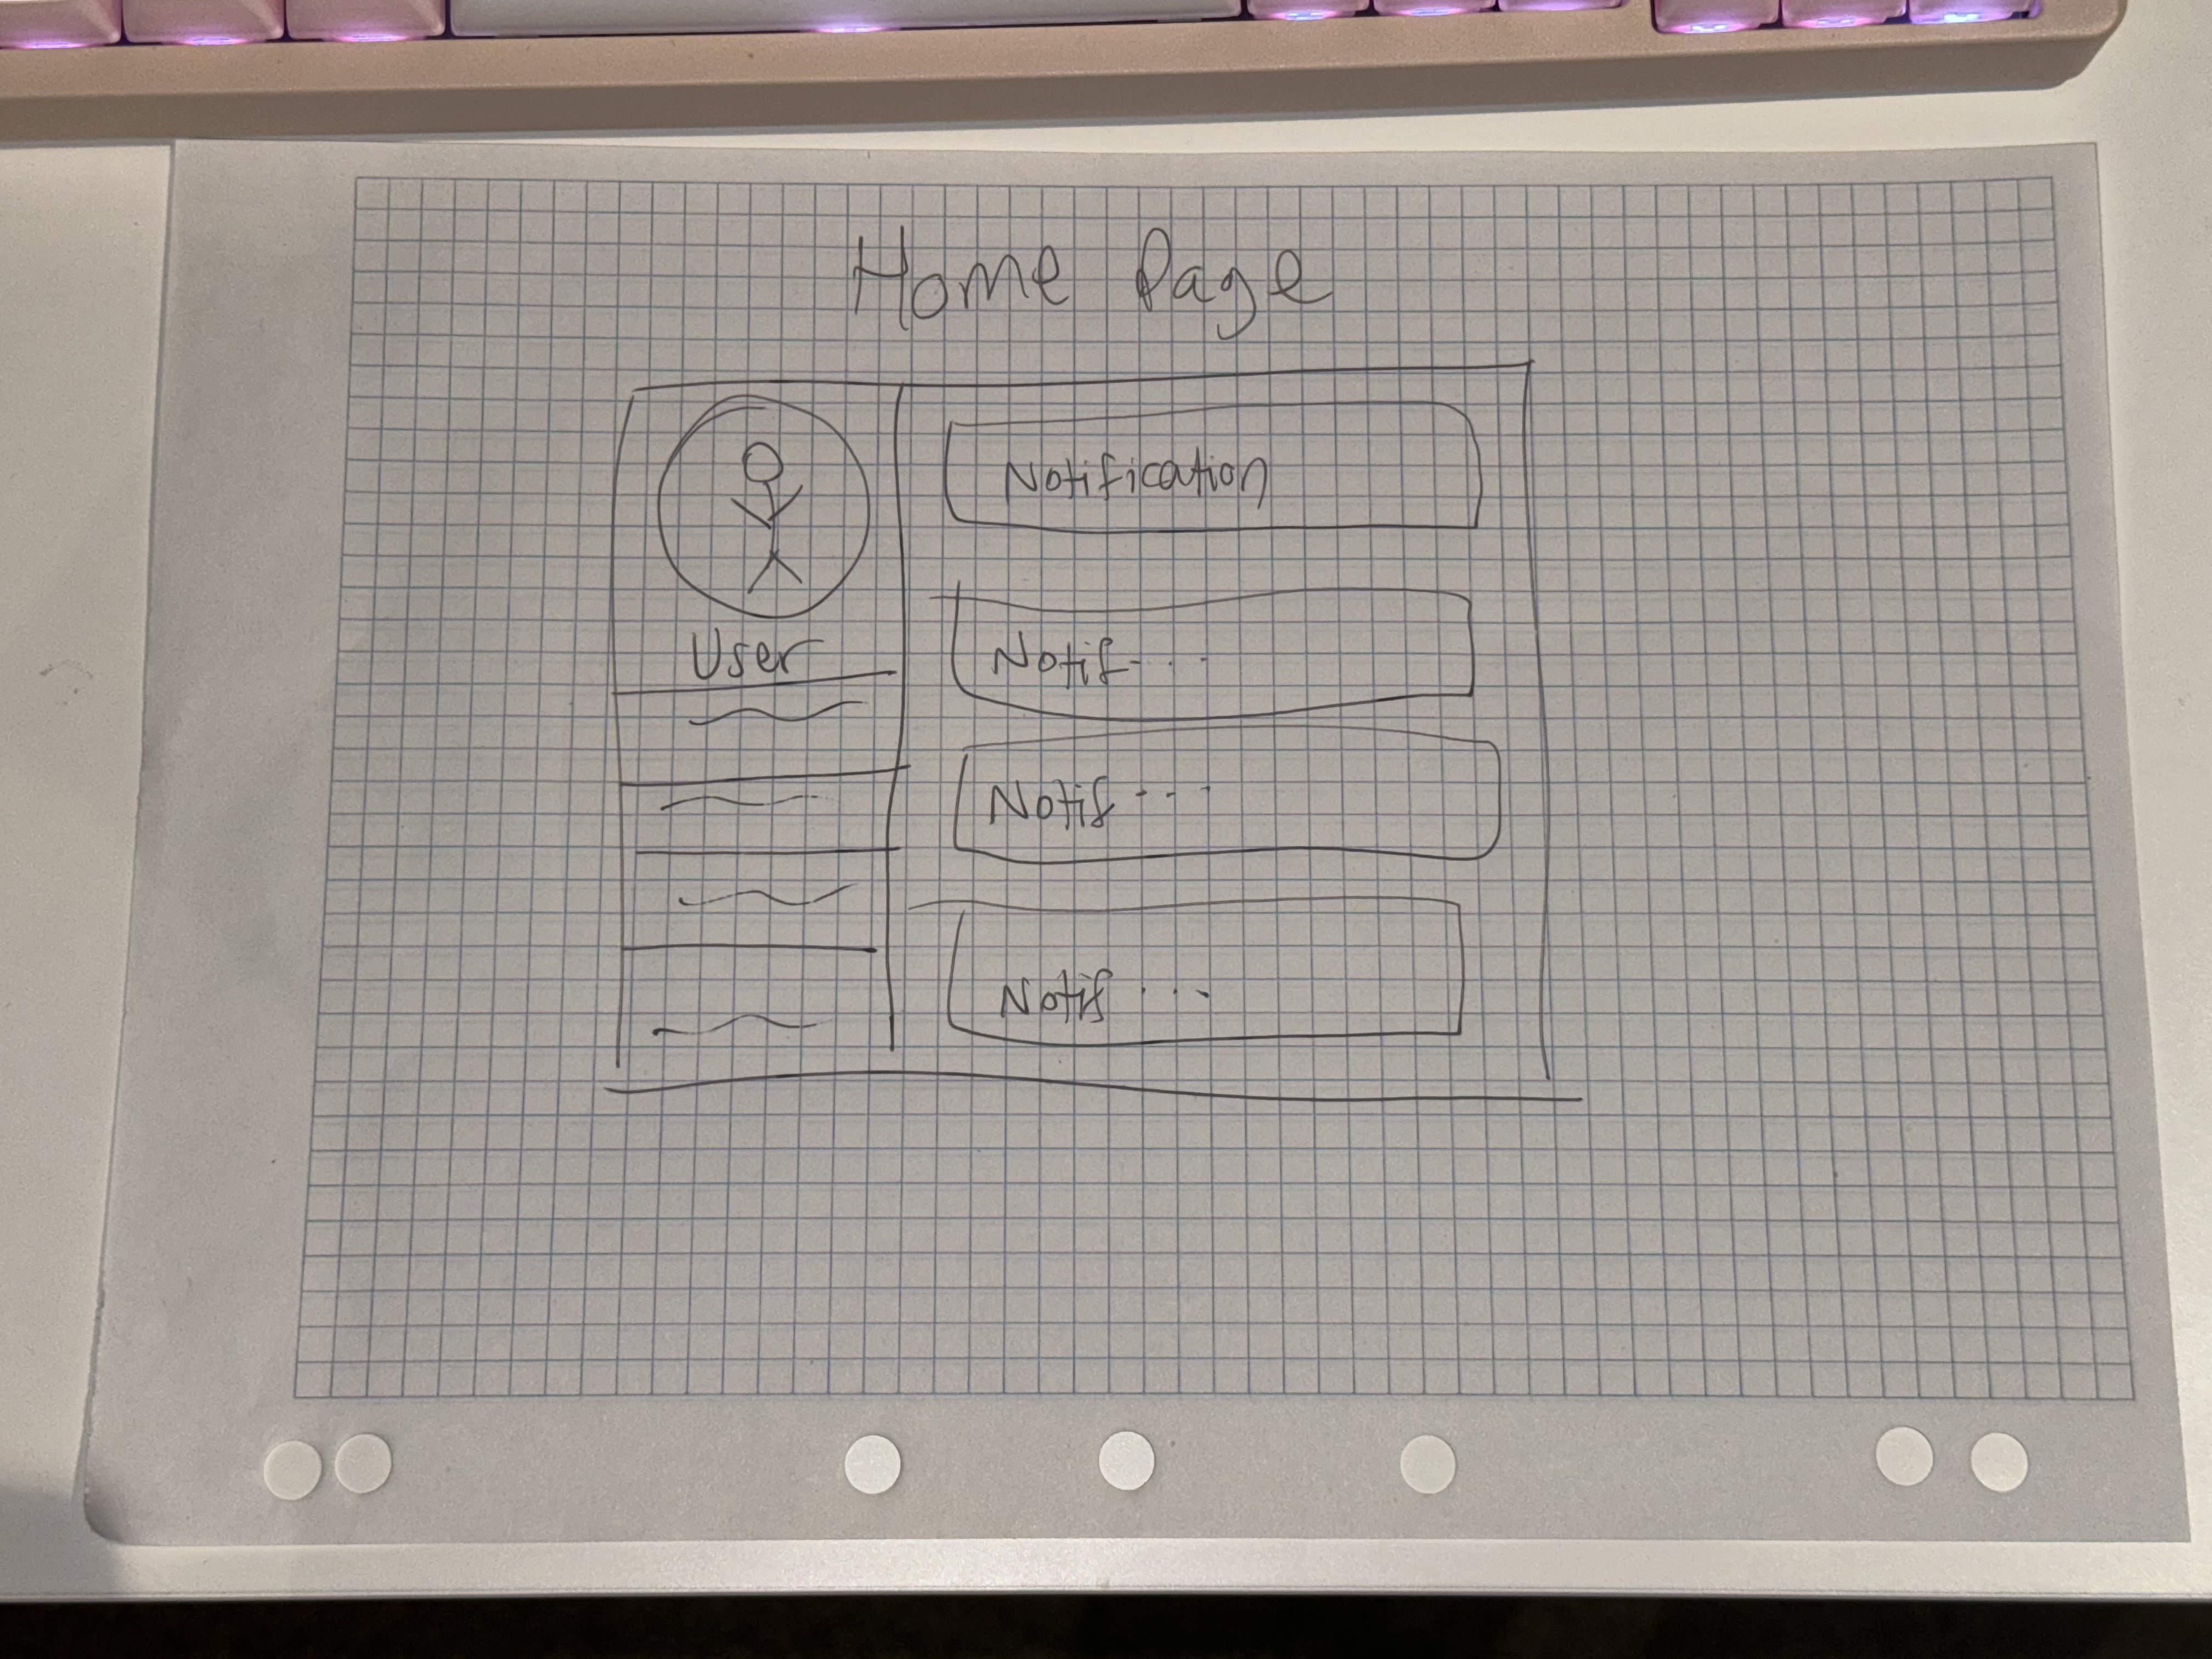 Home Page
User
Notification
Notif...
Notif...
Notif...